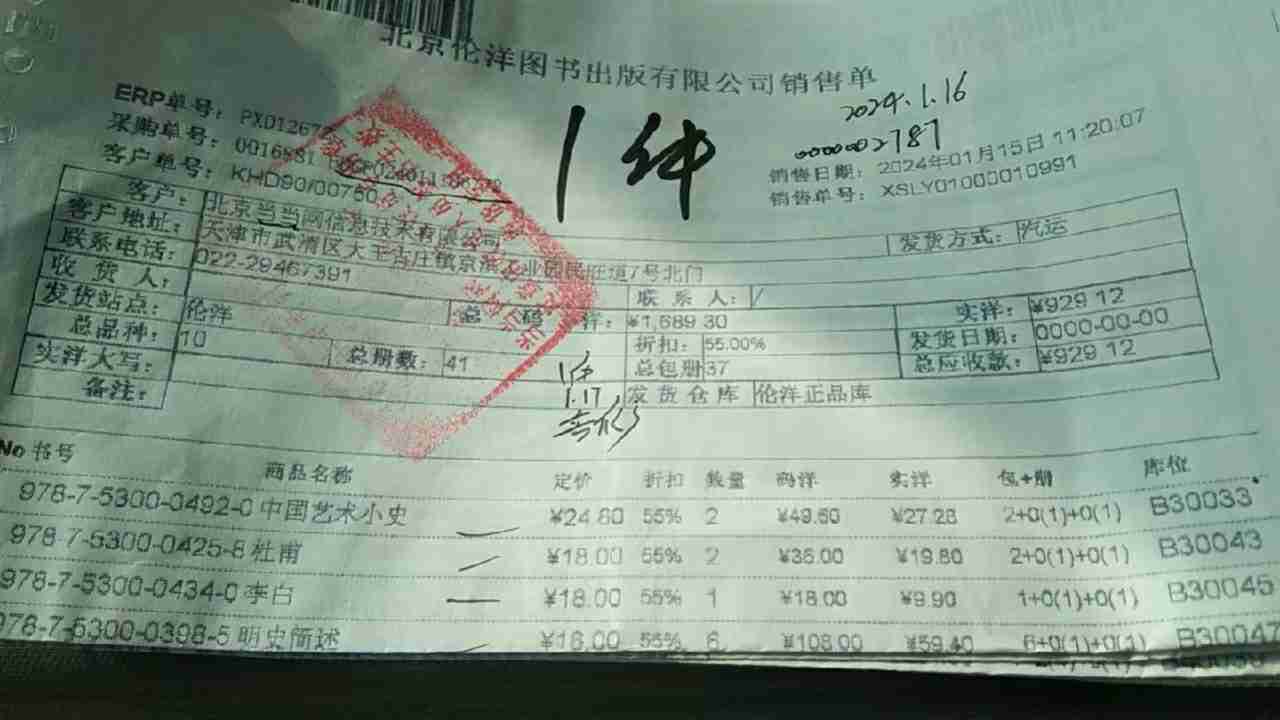 北京伦洋图书出版有限公司销售单
2024.1.16
1件
0000002787
ERP单号: PX012672
采购单号: 0016881
客户单号: KHD90/00750
销售日期: 2024年01月15日 11:20:07
销售单号: XSLY01000010991
客户: 北京当当网信息技术有限公司 发货方式: 汽运
客户地址: 天津市武清区大王古庄镇京滨工业园民旺道7号北门
联系电话: 022-29467391 联系人: /
收货人: 总码洋: ¥1,689.30 实洋: ¥929.12
发货站点: 伦洋 折扣: 55.00% 发货日期: 0000-00-00
总品种: 10 总册数: 41 总包册 37 总应收款: ¥929.12
实洋大写: 发货仓库 伦洋正品库
备注:
1件
1.17
No 书号 商品名称 定价 折扣 数量 码洋 实洋 包+册 库位
978-7-5300-0492-0 中国艺术小史 ¥24.80 55% 2 ¥49.60 ¥27.28 2+0(1)+0(1) B30033
978-7-5300-0425-8 杜甫 ¥18.00 55% 2 ¥36.00 ¥19.80 2+0(1)+0(1) B30043
978-7-5300-0434-0 李白 ¥18.00 55% 1 ¥18.00 ¥9.90 1+0(1)+0(1) B30045
978-7-5300-0398-5 明史简述 ¥18.00 55% 6 ¥108.00 ¥59.40 6+0(1)+0(1) B30047